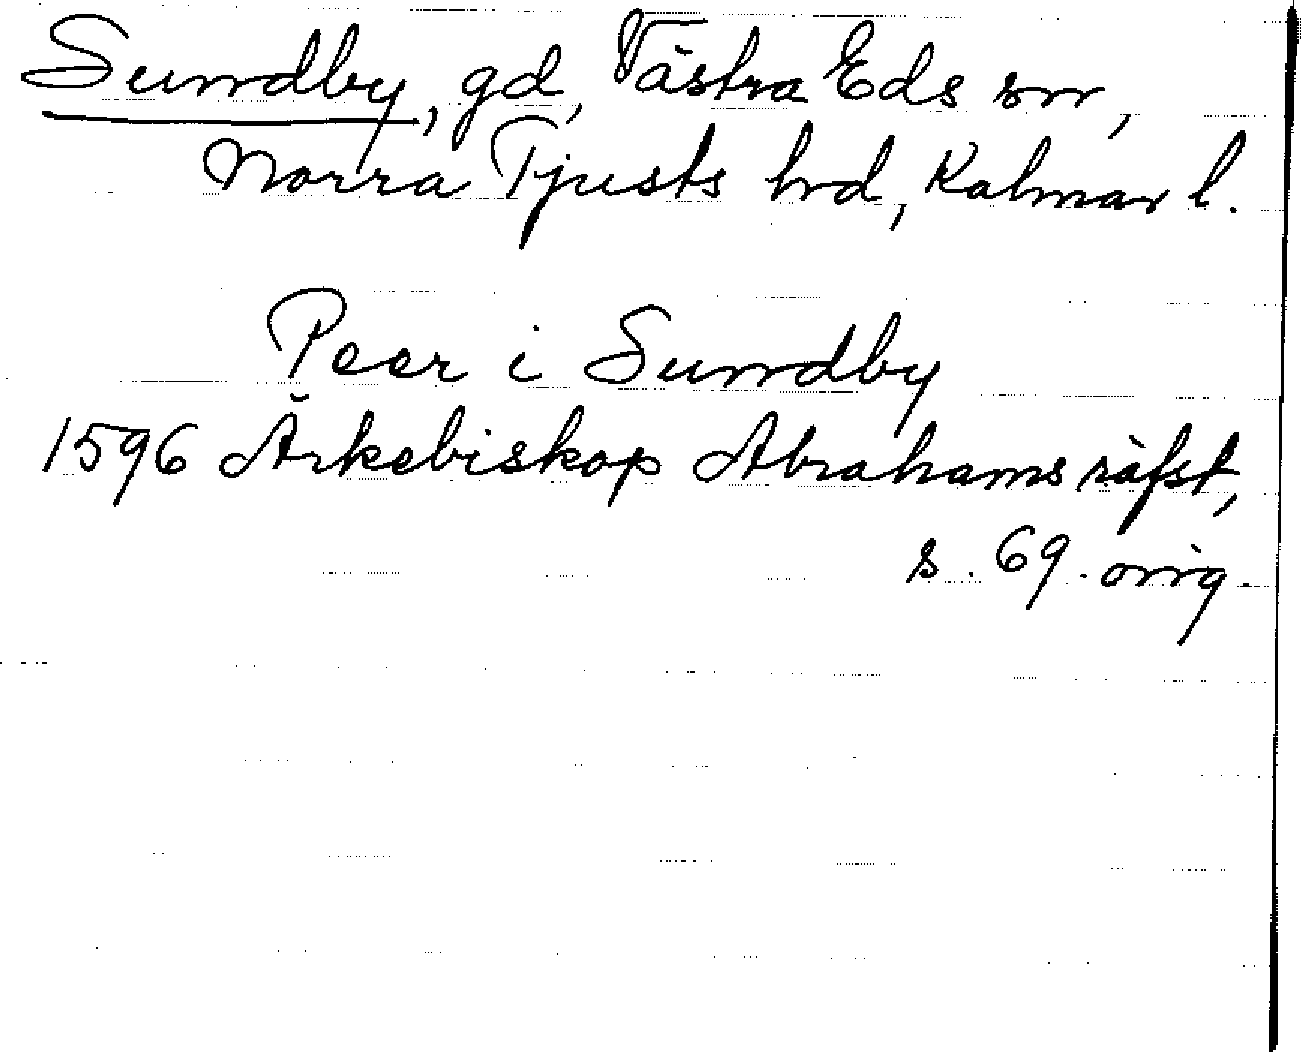 Sundby, gd, Västra Eds sn,
Norra Tjusts hrd, Kalmar l.
Peer i Sundby
1596 Ärkebiskop Abrahams räfst,
s. 69. orig.